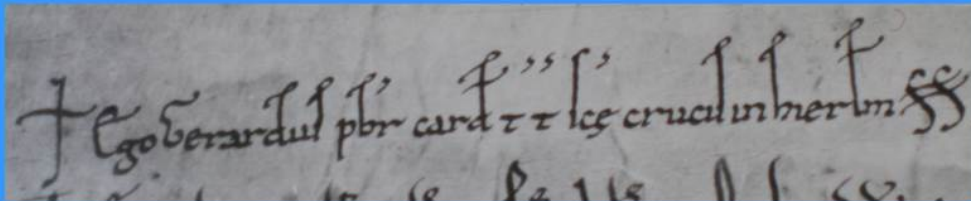 † Ego Gerardus pbr card t t scę crucis in hierlm SS